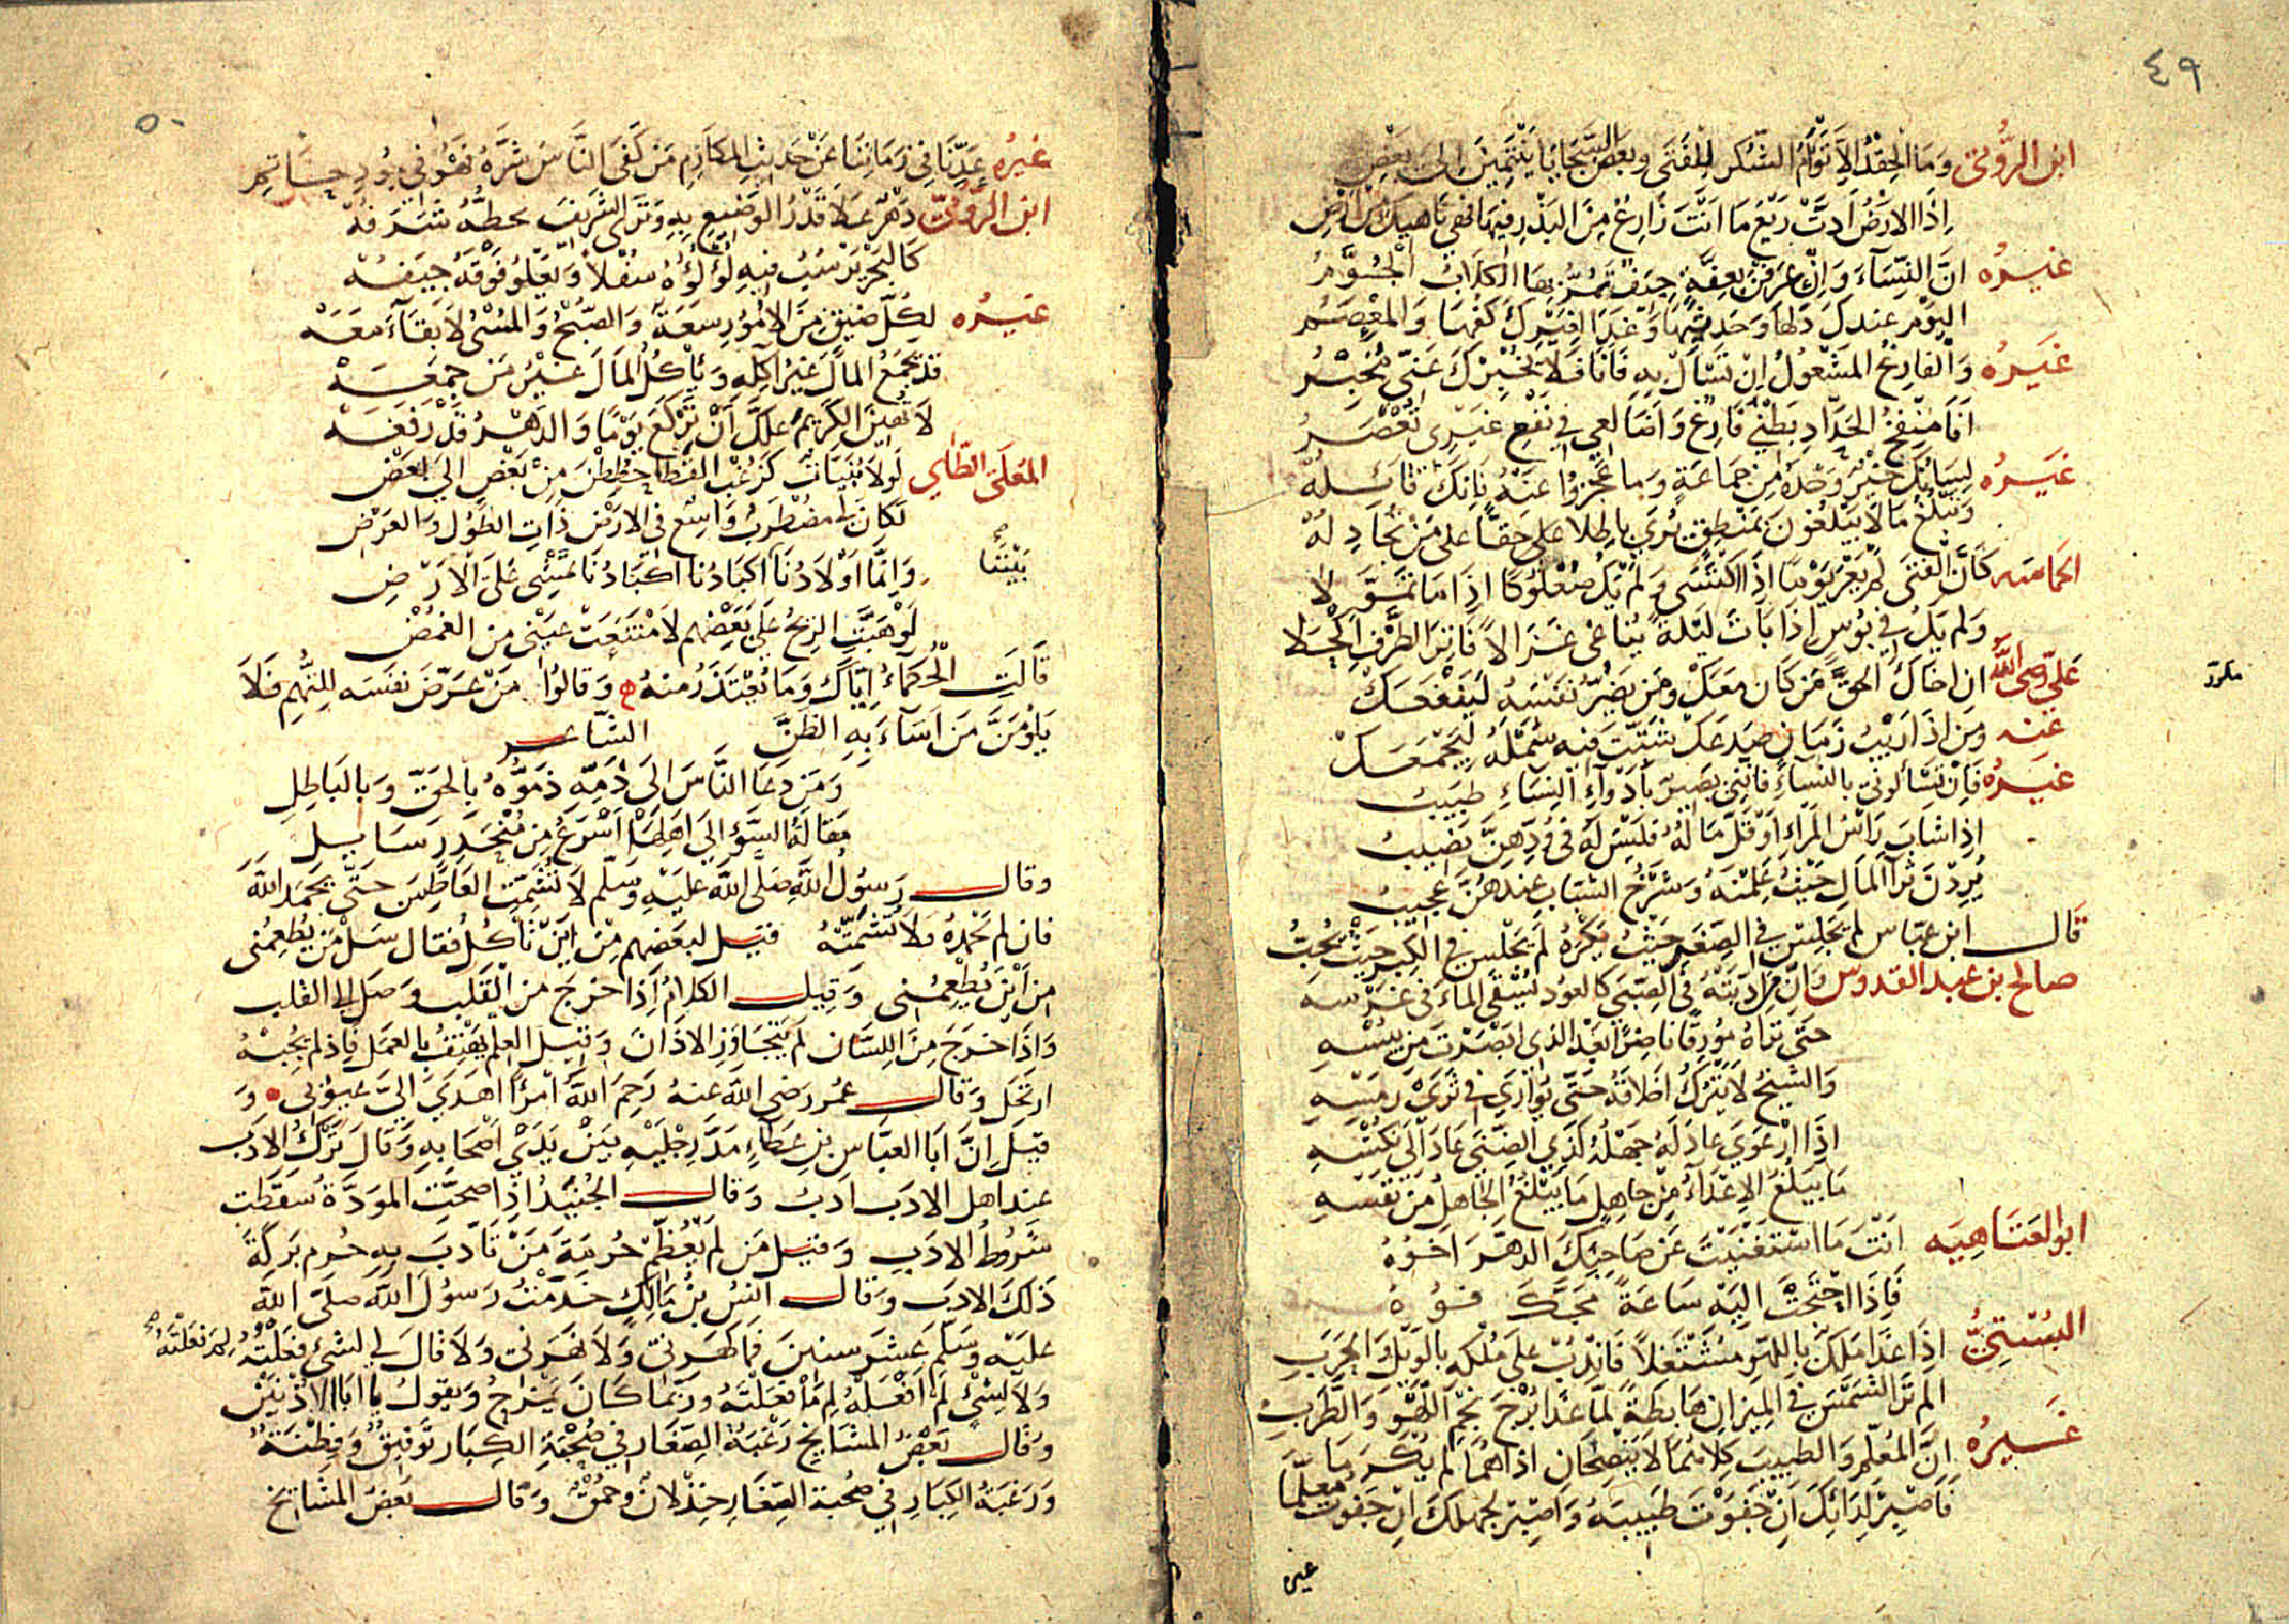 ٤٩
ابن الرومي وَمَا الحِقْدُ الاّ تَوْأَمُ الشكر للفَتَى وبَعض السَّجَايَا يَنْتَمِينَ الى بَعْضِ
اِذَا الارَضُ اَدتّ رَيْعَ مَا اَنْتَ زَارِعٌ مِنَ البَذْرِ فيهَا فهي نَاهيكَ مِن ارْضِ
غيره انَّ النِّسَآءَ وَاِنْ عرفن بعِفّةٍ جِيَفٌ تمُرُّ بهَا الكلابُ الحُوَّمُ
اليَوْم عندك دَلهَا وَحَديثهَا وَغَدًا لِغَيْرِكَ كَفهَا وَالمِعْصَمُ
غيَرُه وَالفارِغ المَشْغُولُ اِنْ تسْأَلْ بهِ فَانَا فَلَا يخْبِرْكَ عَنّي مخْبِرُ
اَنَا منْفخُ الحَدّادِ بَطْنِي فَارغ وَاَضَالعِي في نَفْعِ غيْرِي تُعْصَرُ
غيَرُه لِسَانِكَ خيرٌ وَحْدَهُ مِن جَمَاعَةٍ وَما عَجزُوا عَنْهُ فَانِكَ قَائِلُهْ
وَتبْلُغُ مَا لا يَبْلغُونَ بمنطقٍ يُرَي باطِلا على حَقًّا على مَنْ يُجَادِلُهْ
الحماسه كَأَنَّ الفَتَى لم يَعْرَ يَوْمًا اِذَا اكْتَسَى وَلَمْ يَكُ صُعْلُوكًا اِذَا مَا تمَوَّلا
وَلم يَكُ في بُوسٍ اِذَا بَاتَ لَيْلةً يُنَاغى غَزَالاً فَاتِرَ الطَّرْفِ اَكْحَلا
عَلِيّ رضى الله ان اخَاكَ الحقَّ مَن كَانَ معَكْ ومَن يَضُرُّ نَفسَهُ ليَنفَعَكْ
مكرر
عنه ومَن اِذَا رَيْبُ زَمَانٍ صَدعَكْ شتّتَ فيهِ شَمْلَهُ لِيَجْمَعَكْ
غيَرُه فَاِنْ تَسْأَلُوني بالنِّسَاءِ فَانّنِي بَصيرٌ بأَدْوَآءِ النِسَاءِ طَبيبُ
اِذا شابَ رَأسُ المَرءِ اَوْ قَلَّ مَالُهُ فَليْسَ لهُ في وُدِّهِنَّ نَصيبُ
يُرِدْنَ ثرآ المَالِ حَيْثُ عَلِمْنَهُ وَشَرْخُ الشّبَابِ عندهُنَّ عَجيبُ
قَال ابن عبّاس لم يَجلِسْ في الصِغَر حَيْثُ يَكْرَهُ لم يَجْلسْ في الكِبر حَيْثُ يُحِبُّ
صالح بن عبد القدوس وَاِنّ مَن اَدّبتَهُ في الصِّبَي كالعُود يُسْقَى المَاءَ في غَرْسِهِ
حَتّى تراهُ مُورِقًا ناضِرًا بَعْدَ الذي ابْصَرْتَ مِن يُبْسِهِ
وَالشيْخُ لا يَتْرُكُ اَخلاقَهُ حَتّى يُوَارَي في ثَرَيْ رَمْسِهِ
اِذَا ارْعَوَي عادَ لَهُ جَهْلُهُ كَذَي الضّنَى عَادَ الَى نُكْسِهِ
مَا يَبْلُغُ الاعْدَاءُ مِن جَاهِلٍ مَا يَبْلُغُ الجَاهِلُ مِن نَفْسِهِ
ابو العتَاهِيَه اَنْتَ مَا اسْتَغنَيْتَ عَن صَاحِبِكَ الدهْرَ اَخُوهُ
فَاِذَا احْتَجْتَ اليهِ سَاعَةً مَجّكَ فوُهُ
البُسْتيُّ اِذَا غَدَا مَلِكٌ باللهْوِ مُشْتَغلاً فَانْدُبْ عَلى مُلكِهِ بالوَيْلِ وَالحَرَبِ
الم تَرَ الشمْسَ في المِيزَانِ هَابطةً لمّا غَدَا بُرْجَ نجْمِ اللَّهْوِ وَالطَّرَبِ
غَيرُه انَّ المُعَلّمَ وَالطبيبَ كِلاهُمَا لا يَنصحَانِ اذا هُمَا لم يُكْرَمَا
فَاصْبِرْ لِدَائِكَ اَنْ جَفَوْتَ طَبيبَهُ وَاصْبِرْ لجهلكَ اِن جَفوْتَ مُعلّمَا
غيره
٥٠
غيرُه عَدِّنَا في زَمَانِنَا عَنْ حَديثِ المكَارِمِ مَن كَفَى النَّاسَ شَرَّهُ فَهْوَ في جُودِ حَاتِمِ
ابن الرُّوميّ دَهْرٌ عَلاَ قَدْرُ الوَضِيعِ بِهِ وَترَى الشَّريفَ يحطُّهُ شَرَفُهْ
كَالبَحْرِ يَرْسُبُ فيهِ لُؤْلُؤُهُ سُفْلاً وَيَعْلُو فَوْقَهُ جيَفُهْ
غيَرُه لِكُلِّ ضيقٍ مِنَ الامُورِ سَعَهْ وَالصّبْحُ وَالمُسْىُ لا بَقآءَ مَعَهْ
قَد يَجْمَعُ المَالَ غَيْرُ آكِلِهِ وَيَأكُلُ المَالَ غَيْرُ مَن جَمَعَهْ
لاَ تُهِينَ الكَرِيمَ عَلكَ اَنْ تَرْكَعَ يَوْمًا وَالدَهْرُ قَدْ رَفَعَهْ
المُعَلّى الطّاي لَولا بُنَيَّاتٌ كَزُغْبِ القَطا حُطِطْنَ مِنْ بَعْضٍ الى بَعْضِ
لكَانَ لي مُضْطَرَبٌ وَاسِعٌ في الارَضِ ذَاتِ الطُّوْل وَالعَرْضِ
بَيْنَنَا
وَاِنَّمَا اَوْلاَدُنَا اكبَادُنا اكبَادُنَا تمْشِي عَلَى الأرْضِ
لَوْ هَبّتِ الريحُ علَى بَعْضِهم لامْتنَعَتْ عَيْني مِن الغمْضِ
قَالَتِ الْحُكمَآءُ اِيّاكَ وَمَا تعْتَذِرُ منهُ وَقالُوا مَنْ عَرّضَ نفسَه لِلتُّهَمِ فلاَ
يَلُومَنَّ مَن اَسَآءَ بِهِ الظَنَّ الشّاعر
وَمَن دَعَا النَّاسَ الى ذَمِّهِ ذَمُّوهُ بِالحقّ وَبالباطِلِ
مَقالَةُ السّوءِ الى اَهلِهَا اَسْرَعُ مِن مُنْحَدِرٍ سَايلِ
وقال رَسوُلُ اللهِ صَلَّى اللهُ عليْهِ وَسَلّم لا تُشَمِّتِ العَاطِسَ حَتّى يَحْمَدَ اللهَ
فان لم يَحْمَدْهُ فلا تُشَمِّتْهُ قيل لبعضِهم مِنْ اَينَ تَأكُل فقال سَلْ مَن يُطعِمُني
مِن اَيْنَ يُطْعِمُني وَقيل الكلامُ اِذَا خرَجَ مِن القَلب وَصَلَ الى القلب
وَاذَا خرَجَ مِنَ اللِسَان لم يَتَجَاوَزِ الاذَانَ وَقيل العِلمُ يَهْتِفُ بالعَمَل فَاِذ لم يُجِبْهُ
ارتحَلَ وَقال عُمَر رَضى اللهُ عنهُ رَحِمَ اللهُ امْرَأً اهَدَى الىَّ عيُوبي وَ
قيلَ اِنَّ اَبَا العبَّاس بن عَطاءٍ مَدَّ رِجْلَيْهِ بَيْنَ يَدَيْ اَصْحَابهِ وَقَالَ تَرْكُ الادَبِ
عند اهل الادَب ادَبٌ وَقال الجُنيْدُ اِذَا صَحَّتِ الموَدَّةُ سَقَطَت
شرُوطُ الادَبِ وَقيل مَن لم يُعَظِّمْ حُرمَةَ مَنْ تَأَدّبَ بهِ حُرِمَ بَرَكَةَ
ذَلكَ الادَب وَقال اَنَسُ بنُ مَالِكٍ خَدَمْتُ رَسوُلَ اللهِ صَلّى اللهُ
عليْهِ وَسَلَّم عَشْرَ سنينَ فمَا كَهرَني وَلا نَهَرَني وَلا قَالَ لي لشَىْءٍ فَعَلْتُهُ لِمَ فَعَلْتَهُ
وَلا لِشَىْءٍ لَمْ اَفْعَلْهُ لِمَ مَا فعَلْتَهُ ورُبّمَا كَانَ يَمْزَحُ وَيقولُ يا ابَا الاذْنَيْنِ
وَقال بَعْضُ المشَايخ رَغْبَةُ الصِّغَار في صُحْبَةِ الكِبَار تَوْفيقٌ وَفِطْنَةٌ
وَرَغبَةُ الكِبَارِ في صُحبَة الصِّغَارِ خِذْلانٌ وَحُمْقٌ وَقال بَعضُ المَشايخ